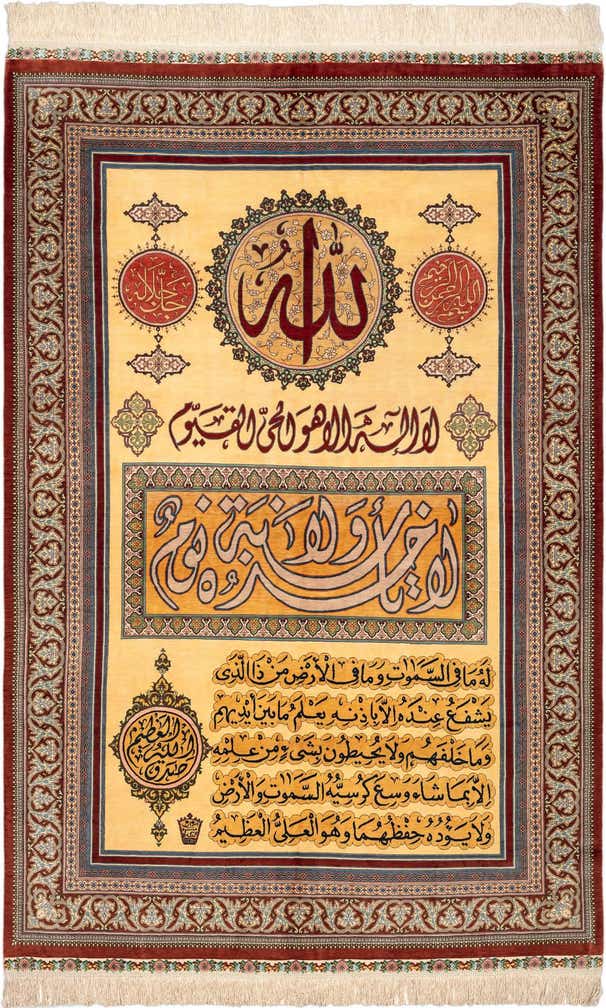 بسم الله الرحمن الرحيم
الله
جل جلاله
لا اله الا هو الحي القيوم
لا تأخذه سنة ولا نوم
له ما في السموت وما في الأرض من ذا الذي
يشفع عنده الا باذنه يعلم ما بين أيديهم
وما خلفهم ولا يحيطون بشيء من علمه
الا بما شاء وسع كرسيه السموت والأرض
ولا يؤده حفظهما وهو العلي العظيم
صدق الله العلي العظيم